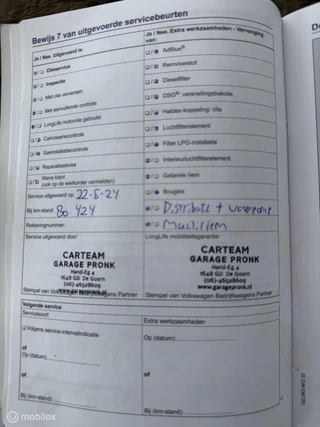 Bewijs 7 van uitgevoerde servicebeurten
Ja / Nee. Uitgevoerd is:
Olieservice
Inspectie
Met olie verversen
Met aanvullende controle
LongLife motorolie gebruikt
Carrosseriecontrole
Gasinstallatiecontrole
Reparatieadvies
Wens klant
(ook op de werkorder vermelden)
Service uitgevoerd op: 22-5-24
Bij km-stand: 80 424
Rekeningnummer:
Service uitgevoerd door:
CARTEAM
GARAGE PRONK
Hand-Eg 4
1648 GD De Goorn
(06)-46528609
www.garagepronk.nl
Stempel van Volkswagen Bedrijfswagens Partner
Ja / Nee. Extra werkzaamheden - Vervanging
van:
AdBlue®
Remvloeistof
Dieselfilter
DSG®-versnellingsbakolie
Haldex-koppeling: olie
Luchtfilterelement
Filter LPG-installatie
Interieurluchtfilterelement
Getande riem
Bougies
Distributie + waterpomp
Multiriem
LongLife mobiliteitsgarantie:
CARTEAM
GARAGE PRONK
Hand-Eg 4
1648 GD De Goorn
(06)-46528609
www.garagepronk.nl
Stempel van Volkswagen Bedrijfswagens Partner
Volgende service
Servicesoort
Volgens service-intervalindicatie
of
Op (datum):
of
Bij (km-stand):
Extra werkzaamheden
Op (datum):
of
Bij (km-stand):
mobilox